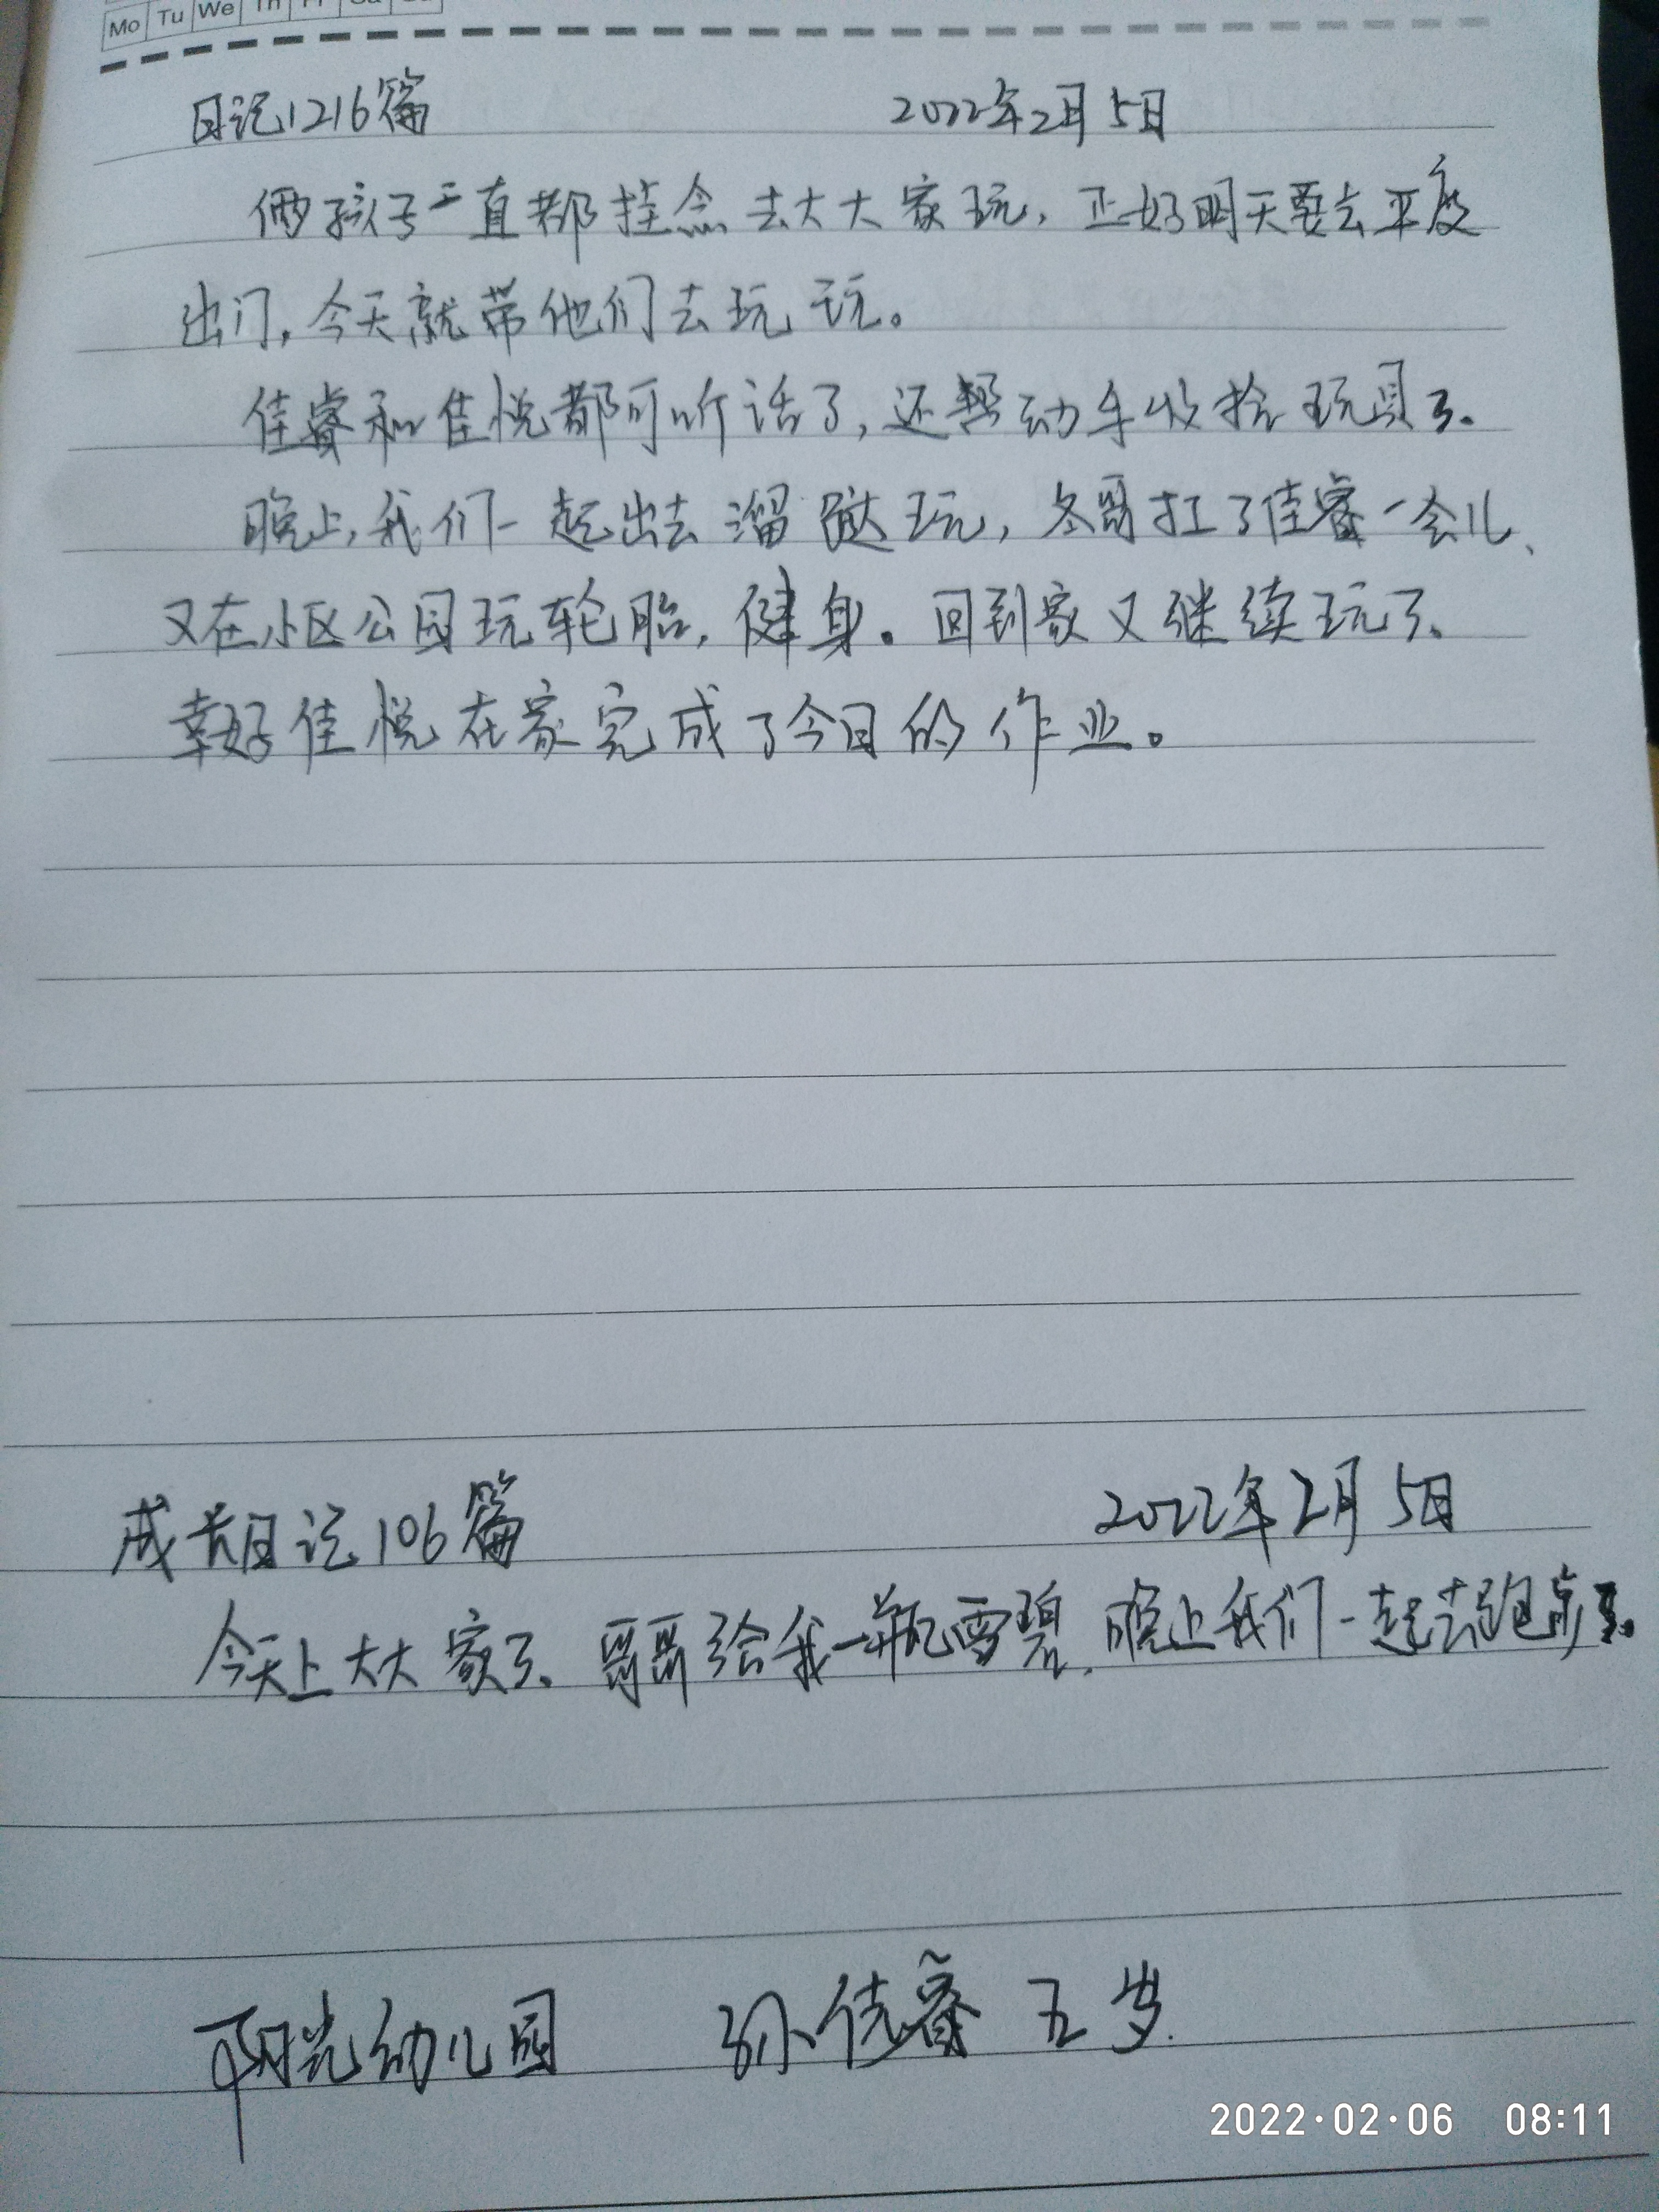 Mo Tu We Th Fr Sa Su
日记1216篇 2022年2月5日
俩孩子一直都挂念去大大家玩,正好明天要去平度
出门,今天就带他们去玩玩。
佳睿和佳悦都可听话了,还帮动手收拾玩具了。
晚上,我们一起出去溜跶玩,冬哥扛了佳睿一会儿、
又在小区公园玩轮胎,健身。回到家又继续玩了。
幸好佳悦在家完成了今日的作业。
成长日记106篇 2022年2月5日
今天上大大家了、哥哥给我一瓶雪碧,晚上我们一起去跑步了。
阳光幼儿园 孙佳睿 五岁.
2022·02·06 08:11